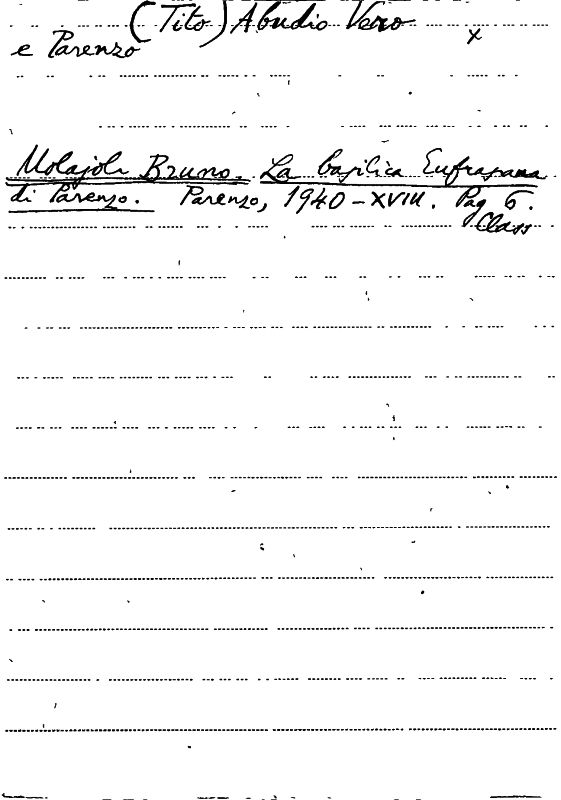 (Tito) Abudio Vero
e Parenzo x
Molajoli Bruno. La basilica Eufrasiana
di Parenzo. Parenzo, 1940-XVIII. Pag 6.
Class